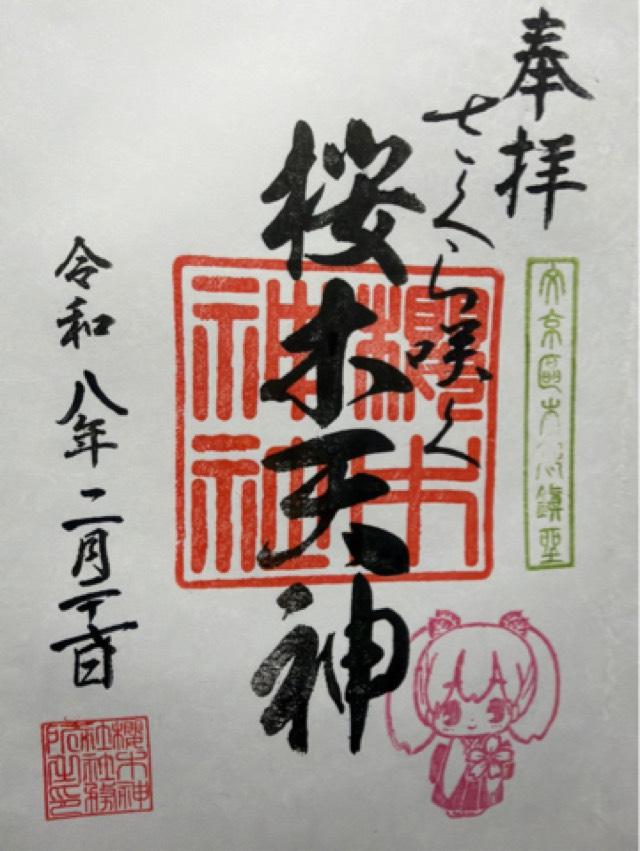 奉拝
文京區本郷鎮座
さくら咲く
桜木天神
櫻木
神社
令和八年二月二十日
櫻木神
社社務
所之印